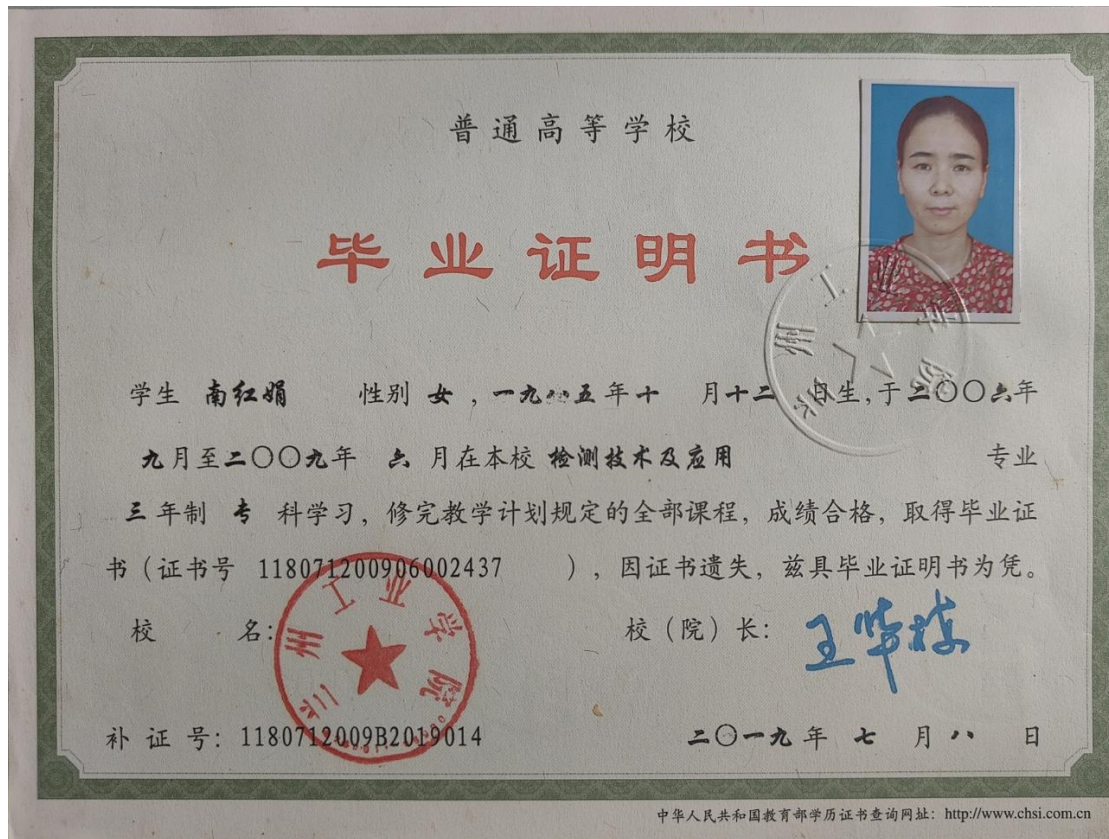 普通高等学校
毕业证明书
学生 南红娟 性别 女 ，一九八五年十 月十二 日生，于二〇〇六年
九月至二〇〇九年 六 月在本校 检测技术及应用 专业
三 年制 专 科学习，修完教学计划规定的全部课程，成绩合格，取得毕业证
书（证书号 118071200906002437 ），因证书遗失，兹具毕业证明书为凭。
校 名： 校（院）长：
兰州工业学院
补 证 号：1180712009B2019014 二〇一九 年 七 月 八 日
中华人民共和国教育部学历证书查询网址：http://www.chsi.com.cn